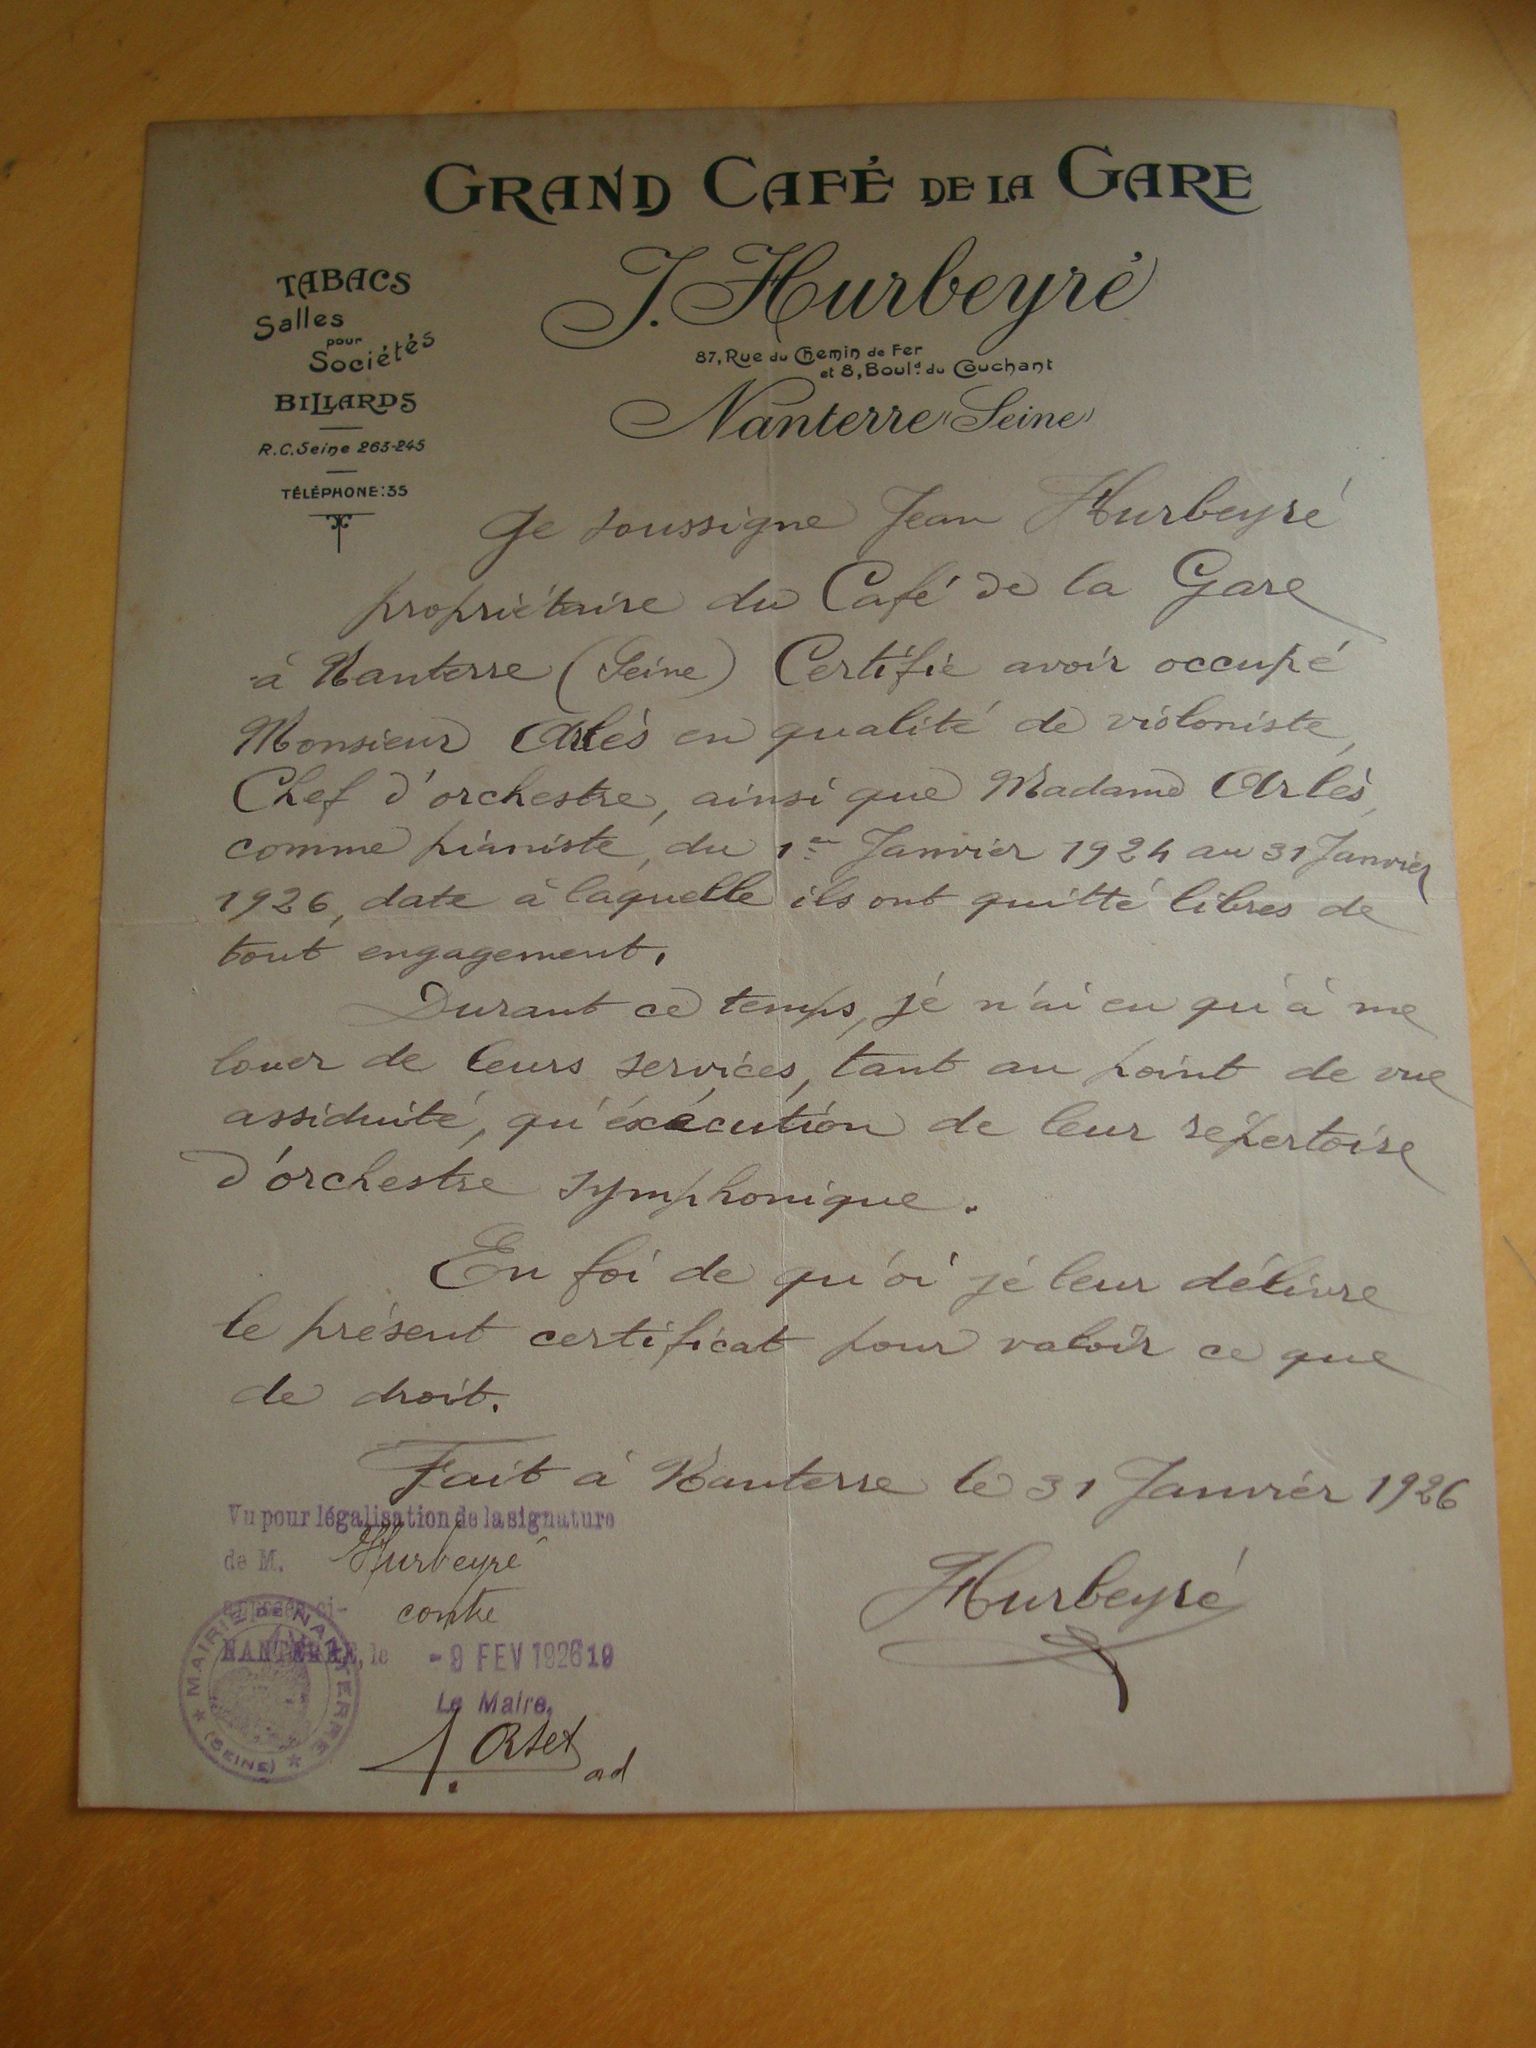 GRAND CAFÉ DE LA GARE
J. Hurbeyré
87, Rue du Chemin de Fer
et 8, Boul.d du Couchant
Nanterre (Seine)
TABACS
Salles
pour
Sociétés
BILLARDS
R.C. Seine 263-245
TÉLÉPHONE: 35
Je soussigne Jean Hurbeyré
propriétaire du Café de la Gare
à Nanterre (Seine) Certifie avoir occupé
Monsieur Arlès en qualité de violoniste,
Chef d'orchestre, ainsi que Madame Arlès,
comme pianiste, du 1er Janvier 1924 au 31 Janvier
1926, date à laquelle ils ont quitté libres de
tout engagement.
Durant ce temps, je n'ai eu qu'à me
louer de leurs services, tant au point de vue
assiduité, qu'éxécution de leur répertoire
d'orchestre symphonique.
En foi de qu'oi je leur délivre
le présent certificat pour valoir ce que
de droit.
Fait à Nanterre le 31 Janvier 1926
Hurbeyré
Vu pour légalisation de la signature
de M. Hurbeyré
apposée ci- contre
NANTERRE, le -9 FEV 1926 19
Le Maire,
MAIRIE DE NANTERRE
(SEINE)